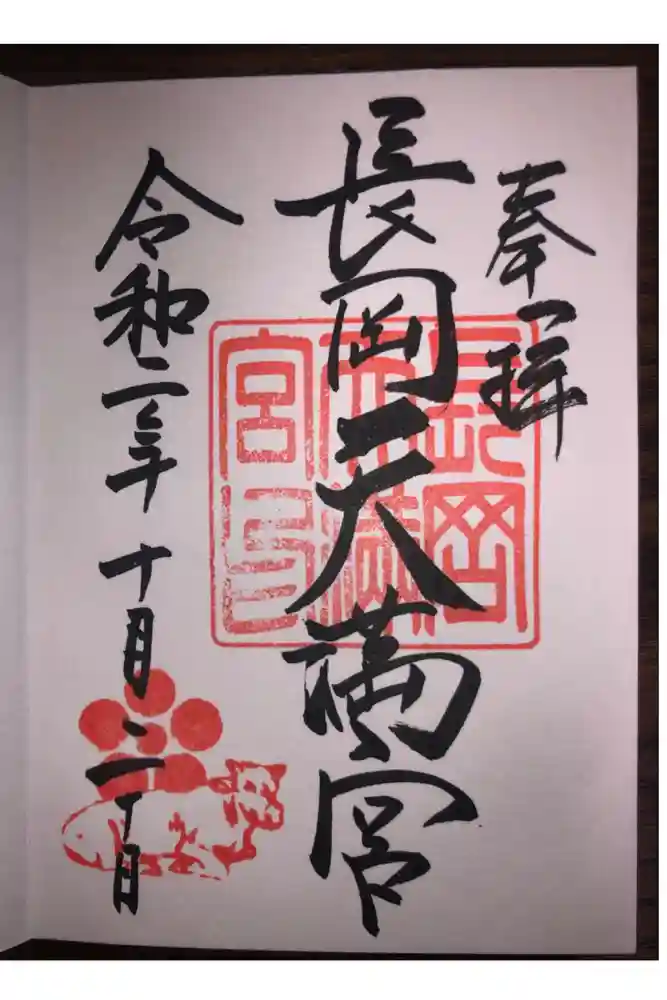 奉拝
長岡天満宮
令和二年十月二十日
長岡
天満
宮印